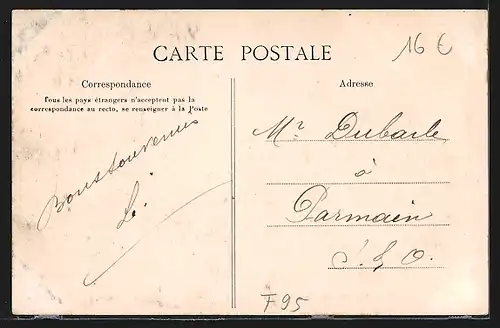 16 €
CARTE POSTALE
Correspondance
Tous les pays étrangers n'acceptent pas la
correspondance au recto, se renseigner à la Poste
Bons souvenirs
Adresse
Mr Dubarle
à
Parmain
S. & O.
F95